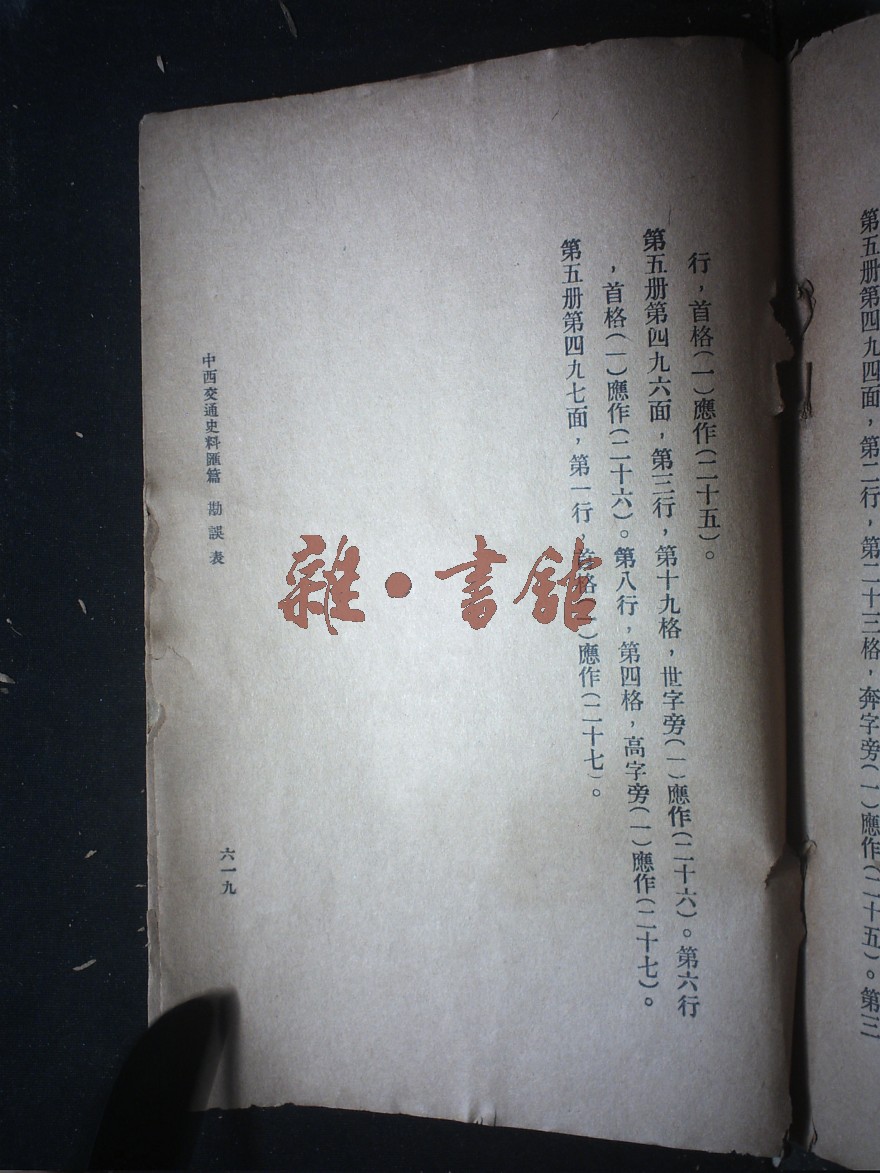 第五册第四九四面，第二行，第二十三格，奔字旁（一）應作（二十五）。第三
行，首格（一）應作（二十五）。
第五册第四九六面，第三行，第十九格，世字旁（一）應作（二十六）。第六行
，首格（一）應作（二十六）。第八行，第四格，高字旁（一）應作（二十七）。
第五册第四九七面，第一行，首格（一）應作（二十七）。
中西交通史料匯篇 勘誤表
六一九
雜·書館